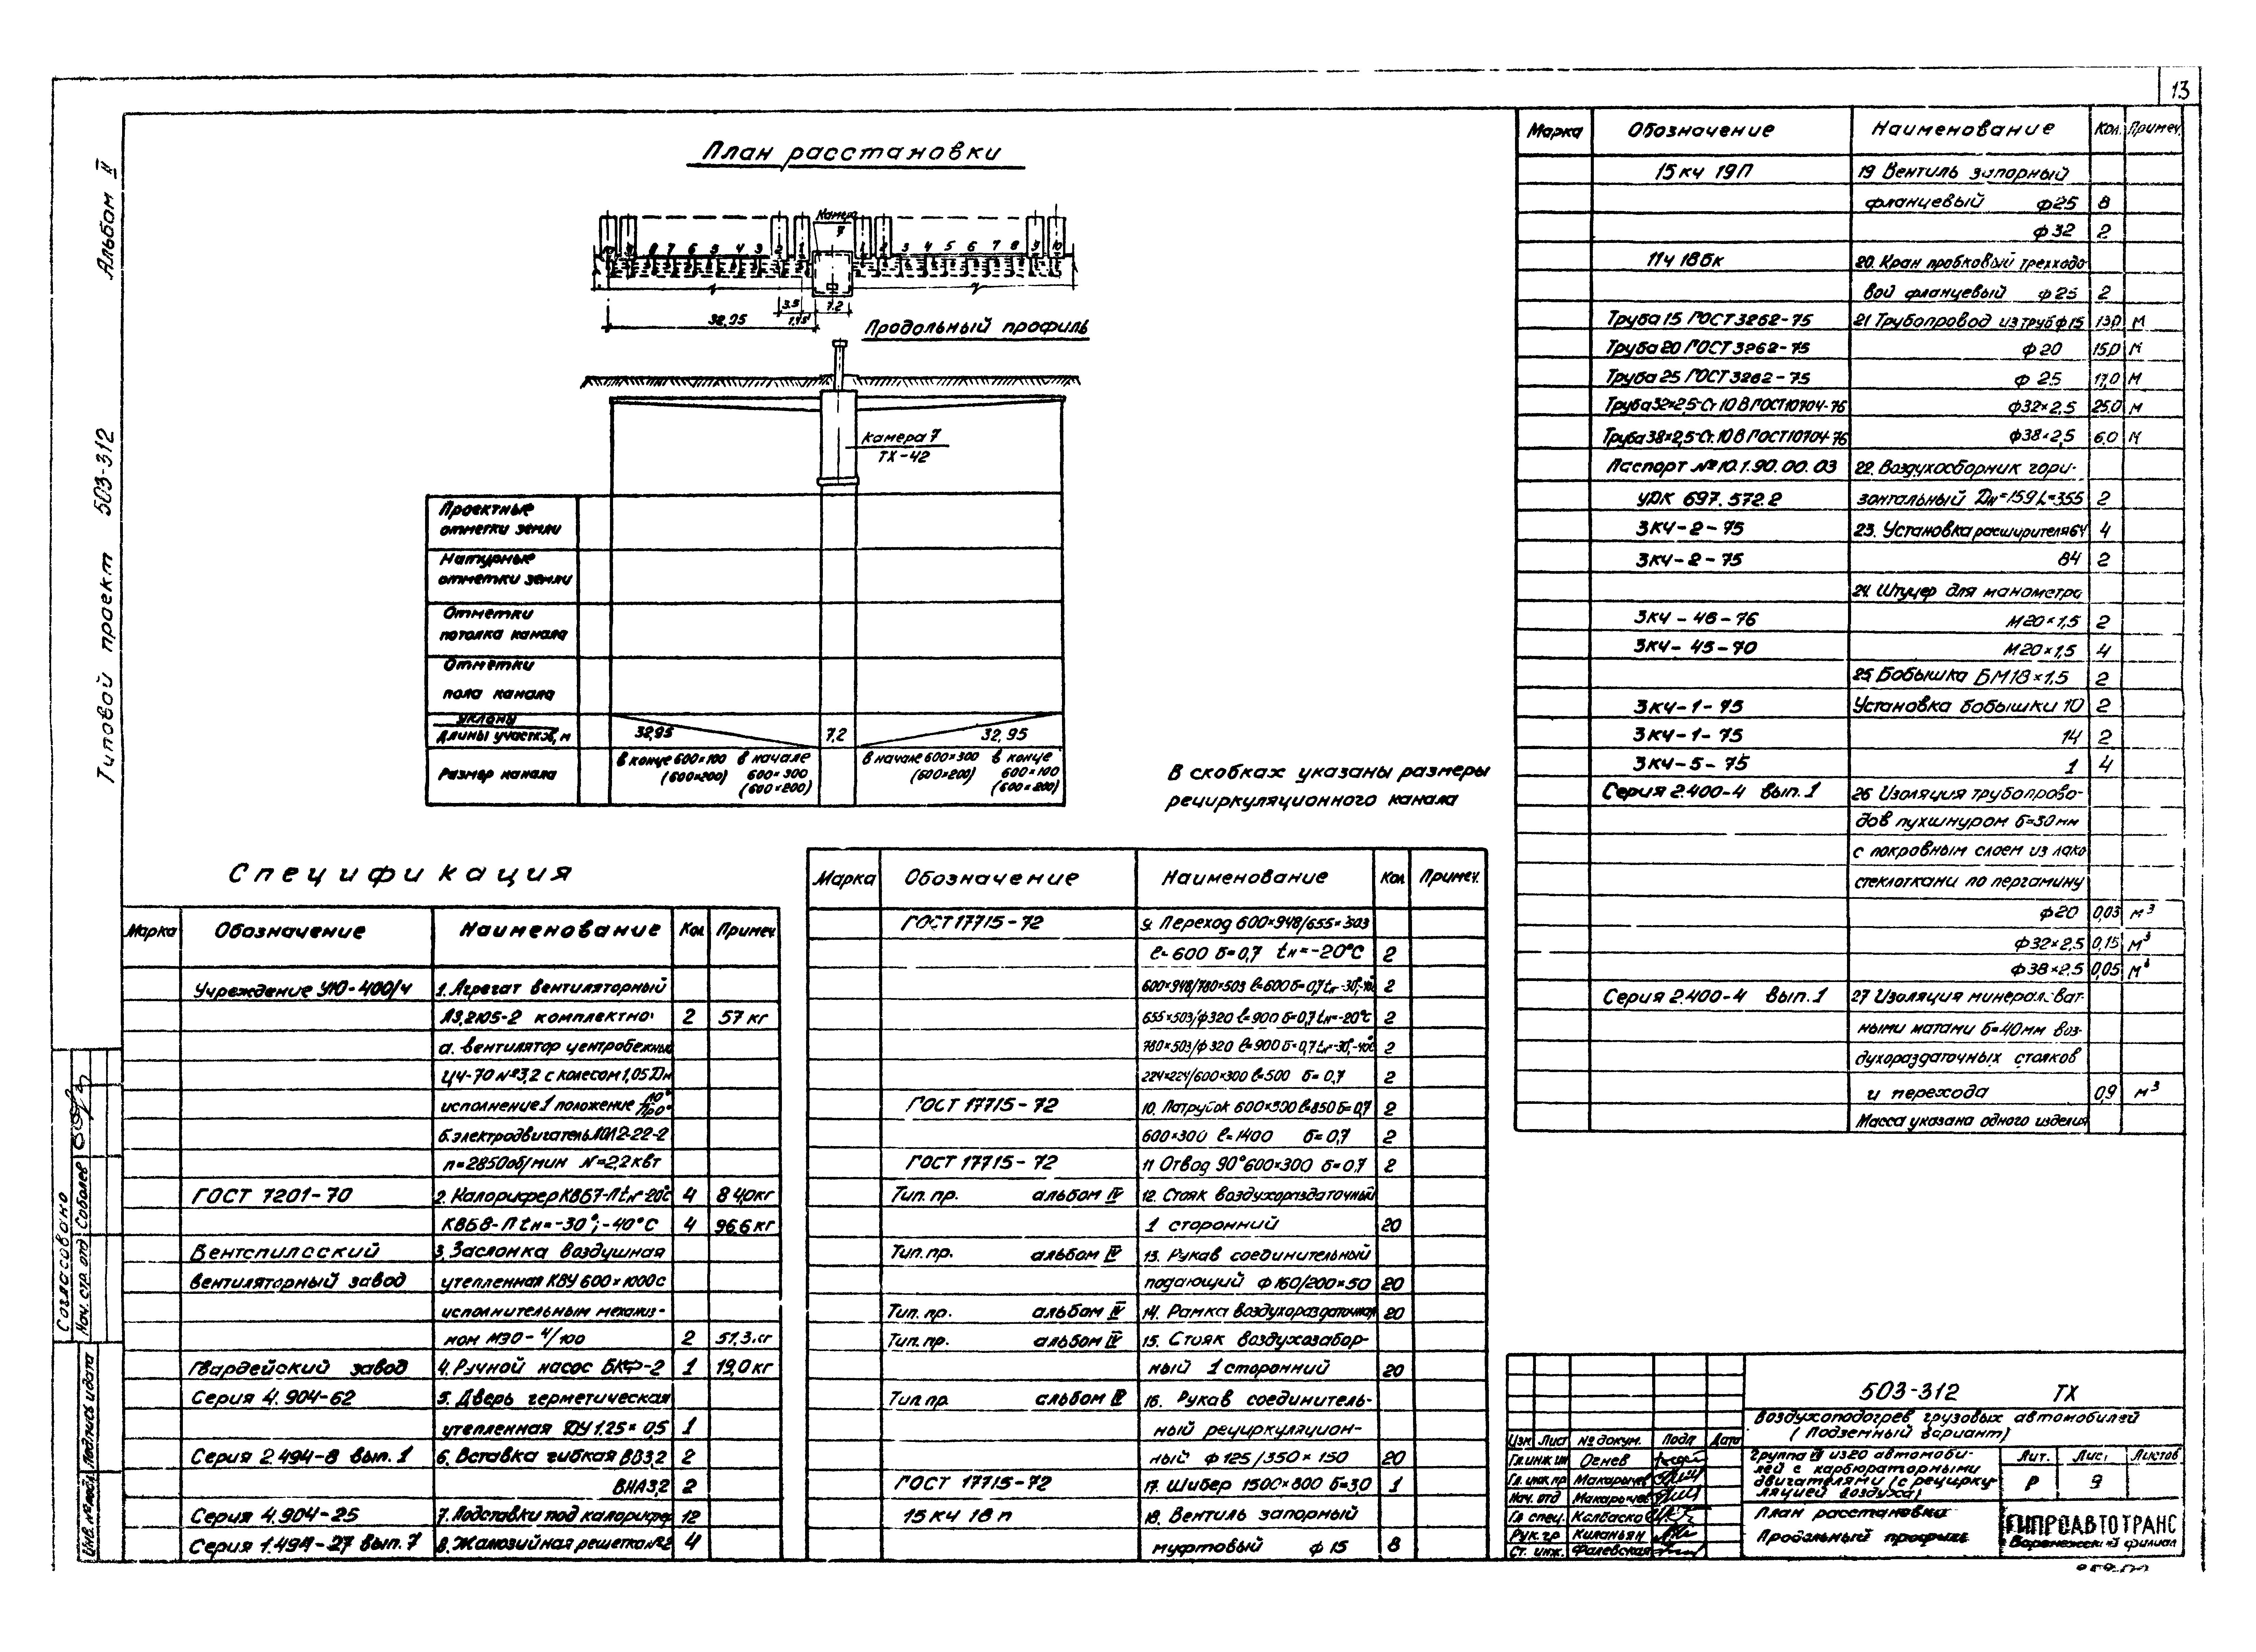 13
Альбом II
Типовой проект 503-312
План расстановки
Камера
7
10 9 8 7 6 5 4 3 2 1
1 2 3 4 5 6 7 8 9 10
3.5
1,75
7.2
32,95
Продольный профиль
Камера 7
ТХ-42
Проектные
отметки земли
Натурные
отметки земли
Отметки
потолка канала
Отметки
пола канала
Уклоны
Длины участков, м
32,95 7,2 32,95
Размер канала
в конце 600×100
(600×200)
в начале
600×300
(600×200)
в начале 600×300
(600×200)
в конце
600×100
(600×200)
В скобках указаны размеры
рециркуляционного канала
Спецификация
Марка Обозначение Наименование Кол Примеч
Учреждение УЮ-400/4 1. Агрегат вентиляторный
А3,2105-2 комплектно: 2 57 кг
а. вентилятор центробежный
Ц4-70 №3,2 с колесом 1,05 Дн
исполнение 1 положение Л0° Пр0°
б. электродвигатель АОЛ2-22-2
n=2850 об/мин N=2,2 квт
ГОСТ 7201-70 2. Калорифер КВБ7-П tн-20°с 4 84,0 кг
КВБ8-П tн=-30°;-40°С 4 96,6 кг
Вентспилсский 3. Заслонка воздушная
вентиляторный завод утепленная КВУ 600×1000 с
исполнительным механиз-
мом МЭО-4/100 2 51,3 кг
Гвардейский завод 4. Ручной насос БКФ-2 1 19,0 кг
Серия 4.904-62 5. Дверь герметическая
утепленная ДУ 1.25×0,5 1
Серия 2.494-8 вып. 1 6. Вставка гибкая ВВ3,2 2
ВНА3,2 2
Серия 4.904-25 7. Подставки под калорифер 12
Серия 1.494-27 вып. 7 8. Жалюзийная решетка №2 4
Марка Обозначение Наименование Кол Примеч.
ГОСТ 17715-72 9. Переход 600×948/655×503
ℓ=600 δ=0,7 tн=-20°С 2
600×948/780×503 ℓ=600 δ=0,7 tн-30°,-40° 2
655×503/ф320 ℓ=900 δ=0,7 tн=-20°С 2
780×503/ф320 ℓ=900 δ=0,7 tн-30°,-40°С 2
224×224/600×300 ℓ=500 δ=0,7 2
ГОСТ 17715-72 10. Патрубок 600×300 ℓ=850 δ=0,7 2
600×300 ℓ=1400 δ=0,7 2
ГОСТ 17715-72 11 Отвод 90° 600×300 δ=0,7 2
Тип. пр. альбом IV 12. Стояк воздухораздаточный
1 сторонний 20
Тип. пр. альбом IV 13. Рукав соединительный
подающий ф160/200×50 20
Тип. пр. альбом IV 14. Рамка воздухораздаточная 20
Тип. пр. альбом IV 15. Стояк воздухозабор-
ный 1 сторонний 20
Тип. пр альбом IV 16. Рукав соединитель-
ный рециркуляцион-
ный ф125/350×150 20
ГОСТ 17715-72 17. Шибер 1500×800 δ=30 1
15 кч 18 п 18. Вентиль запорный
муфтовый ф15 8
Марка Обозначение Наименование Кол. Примеч.
15 кч 19П 19 Вентиль запорный
фланцевый ф25 8
ф32 2
11ч 18бк 20. Кран пробковый трехходо
вой фланцевый ф25 2
Труба 15 ГОСТ 3262-75 21 Трубопровод из труб ф15 13,0 м
Труба 20 ГОСТ 3262-75 ф20 15,0 м
Труба 25 ГОСТ 3262-75 ф25 17,0 м
Труба 32×2,5-Ст. 10 В ГОСТ 10704-76 ф32×2,5 25,0 м
Труба 38×2,5-Ст. 10 В ГОСТ 10704-76 ф38×2,5 6,0 м
Паспорт №10.1.90.00.03 22. Воздухосборник гори-
УДК 697.572.2 зонтальный Дн=159 L=355 2
3КЧ-2-75 23. Установка расширителя 64 4
3КЧ-2-75 84 2
24. Штуцер для манометра
3КЧ-46-76 М20×1,5 2
3КЧ-45-70 М20×1,5 4
25 Бобышка БМ18×1.5 2
3КЧ-1-75 Установка бобышки 10 2
3КЧ-1-75 14 2
3КЧ-5-75 1 4
Серия 2.400-4 вып. 1 26 Изоляция трубопрово-
дов пухшнуром δ=30мм
с покровным слоем из лако
стеклоткани по пергамину
ф20 0,03 м³
ф32×2,5 0,15 м³
ф38×2,5 0,05 м³
Серия 2.400-4 вып. 1 27 Изоляция минерал.ват-
ными матами δ=40мм воз-
духораздаточных стояков
и перехода 0,9 м³
Масса указана одного изделия
Согласовано
Нач. стр. отд Соболев
Инв. № подл. Подпись и дата
503-312 ТХ
Воздухоподогрев грузовых автомобилей
(Подземный вариант)
Изм Лист № докум. Подп Дата
Гл. инж ин Огнев
Гл. инж пр Макарычев
Нач. отд Макарычев
Гл спец. Колбаско
Рук. гр Киланьян
Ст. инж. Фалевская
Группа VII из 20 автомоби-
лей с карбюраторными
двигателями (с рецирку-
ляцией воздуха)
Лит. Лист Листов
Р 9
План расстановки
Продольный профиль
ГИПРОАВТОТРАНС
Воронежский филиал